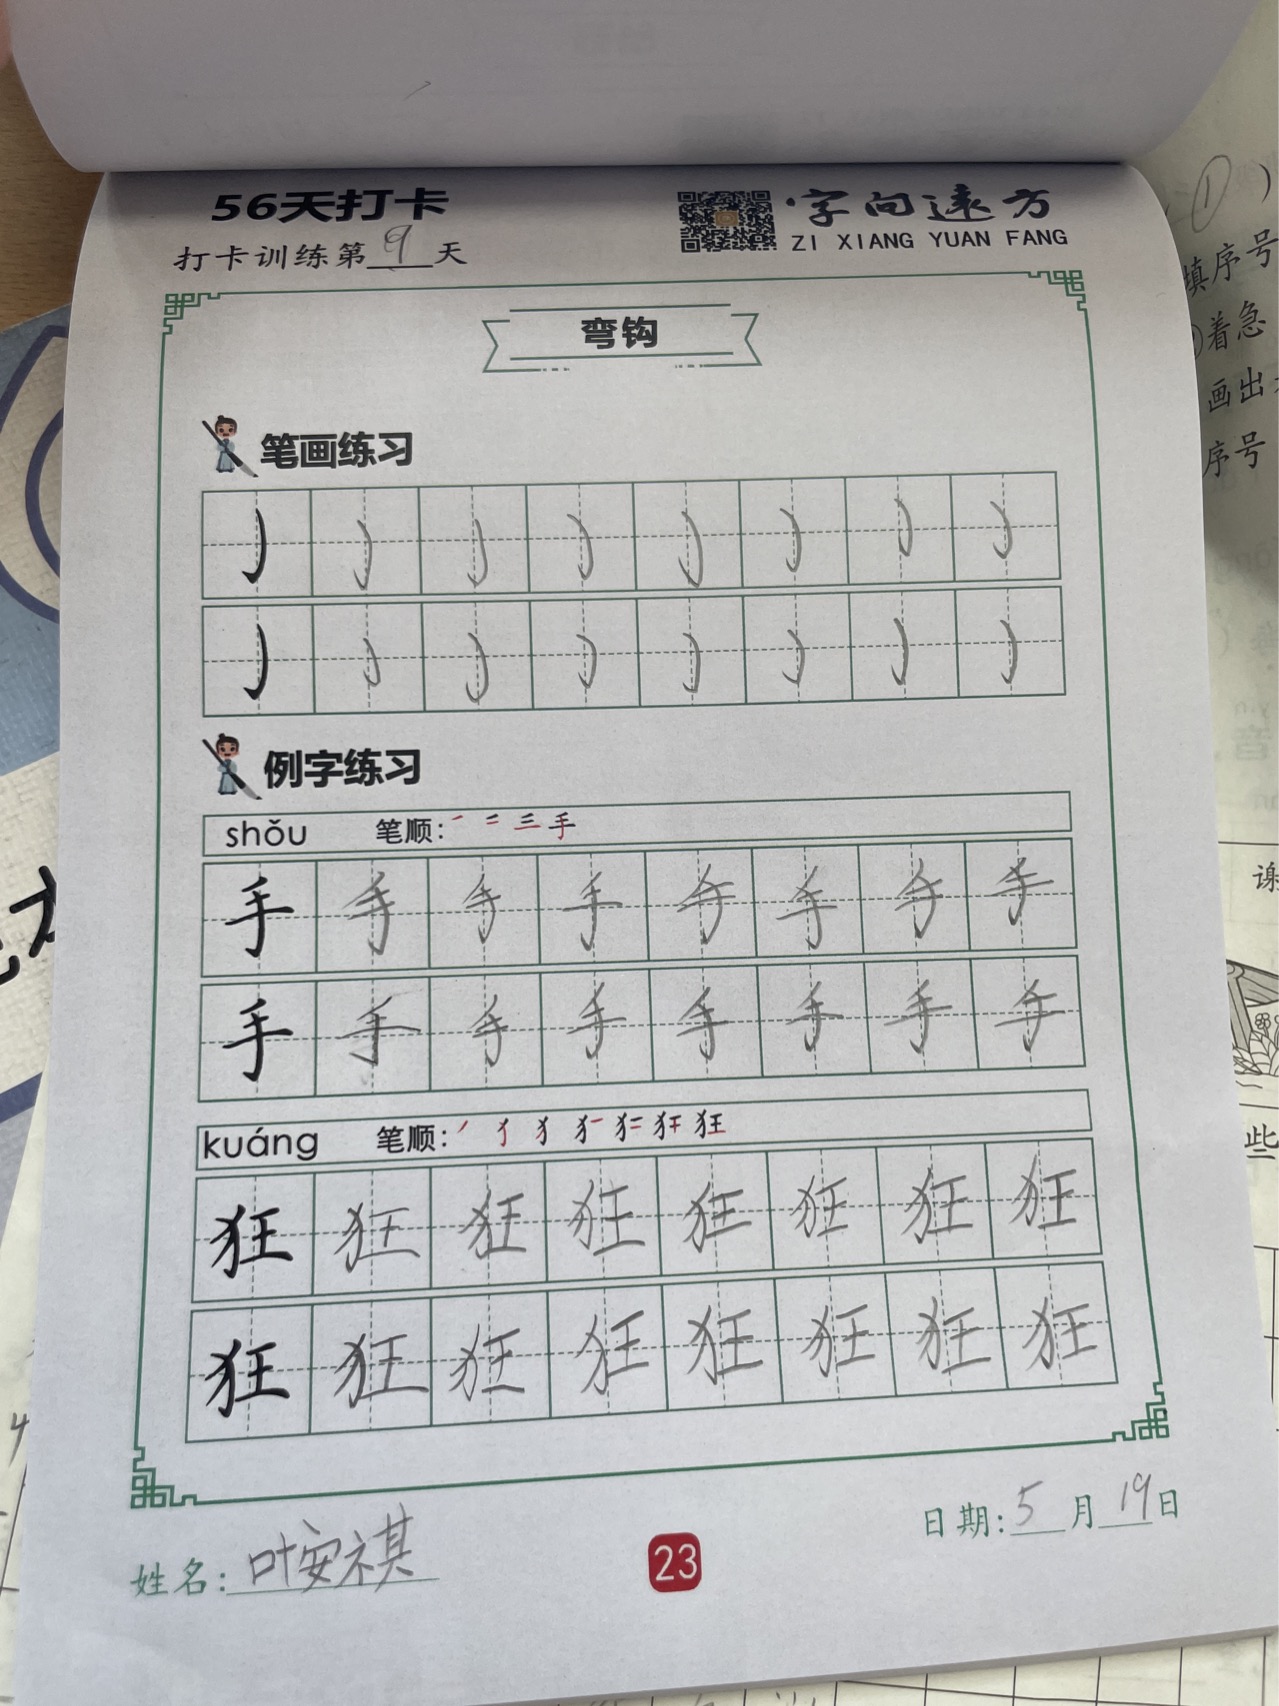 56天打卡
字向远方
ZI XIANG YUAN FANG
打卡训练第9天
弯钩
笔画练习
例字练习
shǒu 笔顺: 手
手手手手手手手手
手手手手手手手手
kuáng 笔顺: 狂
狂狂狂狂狂狂狂狂
狂狂狂狂狂狂狂狂
姓名: 叶安祺
23
日期: 5月19日
①)
填序号
着急
画出
序号
谢
些